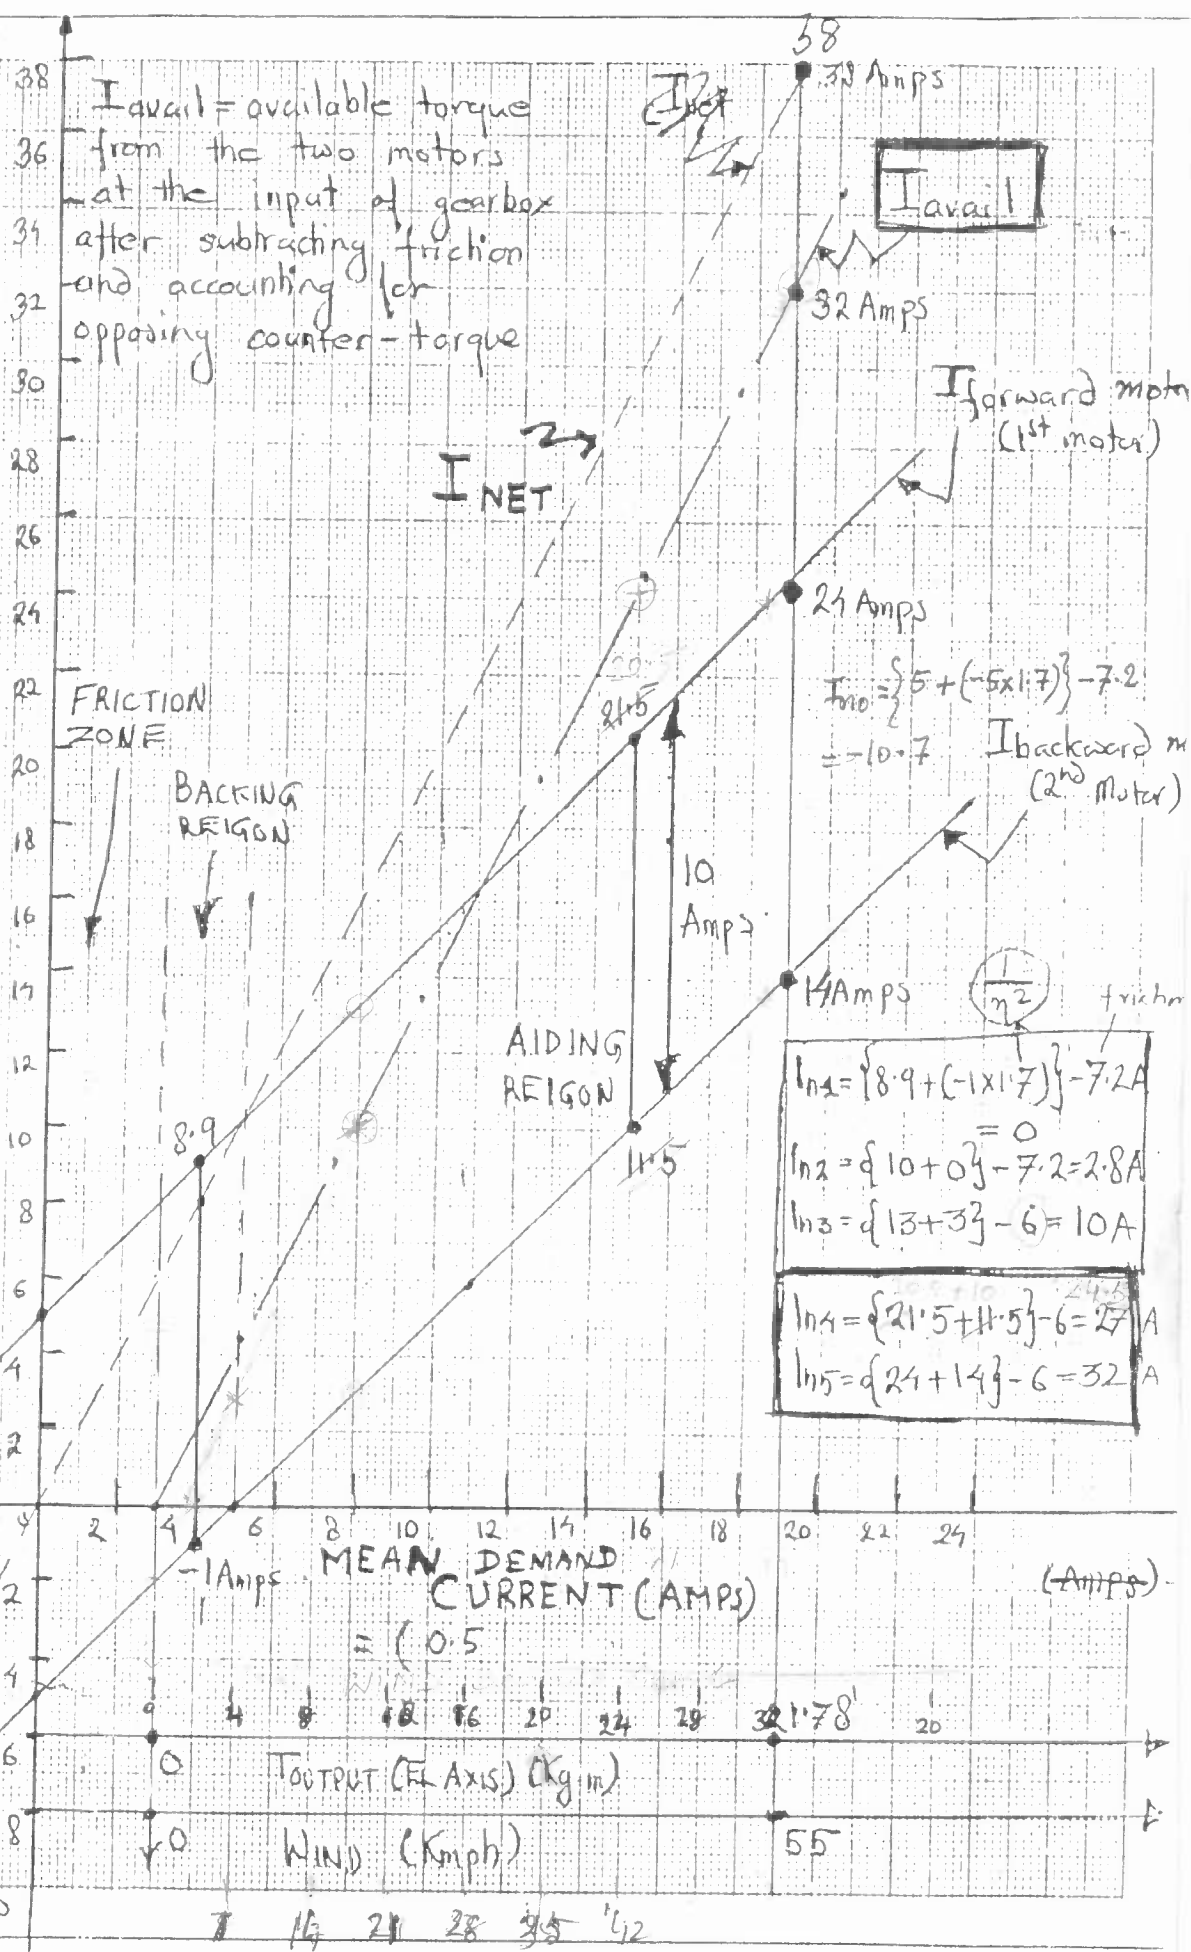 38
38 Amps
I avail = available torque
from the two motors
at the input of gearbox
after subtracting friction
and accounting for
opposing counter-torque
Inet
Iavail
32 Amps
I forward motor
(1st motor)
I NET
24 Amps
21.5
Ino = {5 + (-5x1.7)} - 7.2
= -10.7
I backward m
(2nd Motor)
FRICTION
ZONE
BACKING
REIGON
10
Amps
14 Amps
1/η2
friction
AIDING
REIGON
11.5
8.9
In1 = {8.9 + (-1x1.7)} - 7.2A
= 0
In2 = {10+0} - 7.2 = 2.8A
In3 = {13+3} - 6 = 10A
In4 = {21.5+11.5} - 6 = 27 A
In5 = {24+14} - 6 = 32 A
38
36
34
32
30
28
26
24
22
20
18
16
14
12
10
8
6
4
2
2 4 6 8 10 12 14 16 18 20 22 24
-1 Amps
MEAN DEMAND
CURRENT (AMPS)
(Amps)
= (0.5
2
4
6
8
4 8 16 20 24 28 21.78 20
0
TOUTPUT (EL AXIS) (Kg.m)
0
WIND (Kmph)
55
21 28